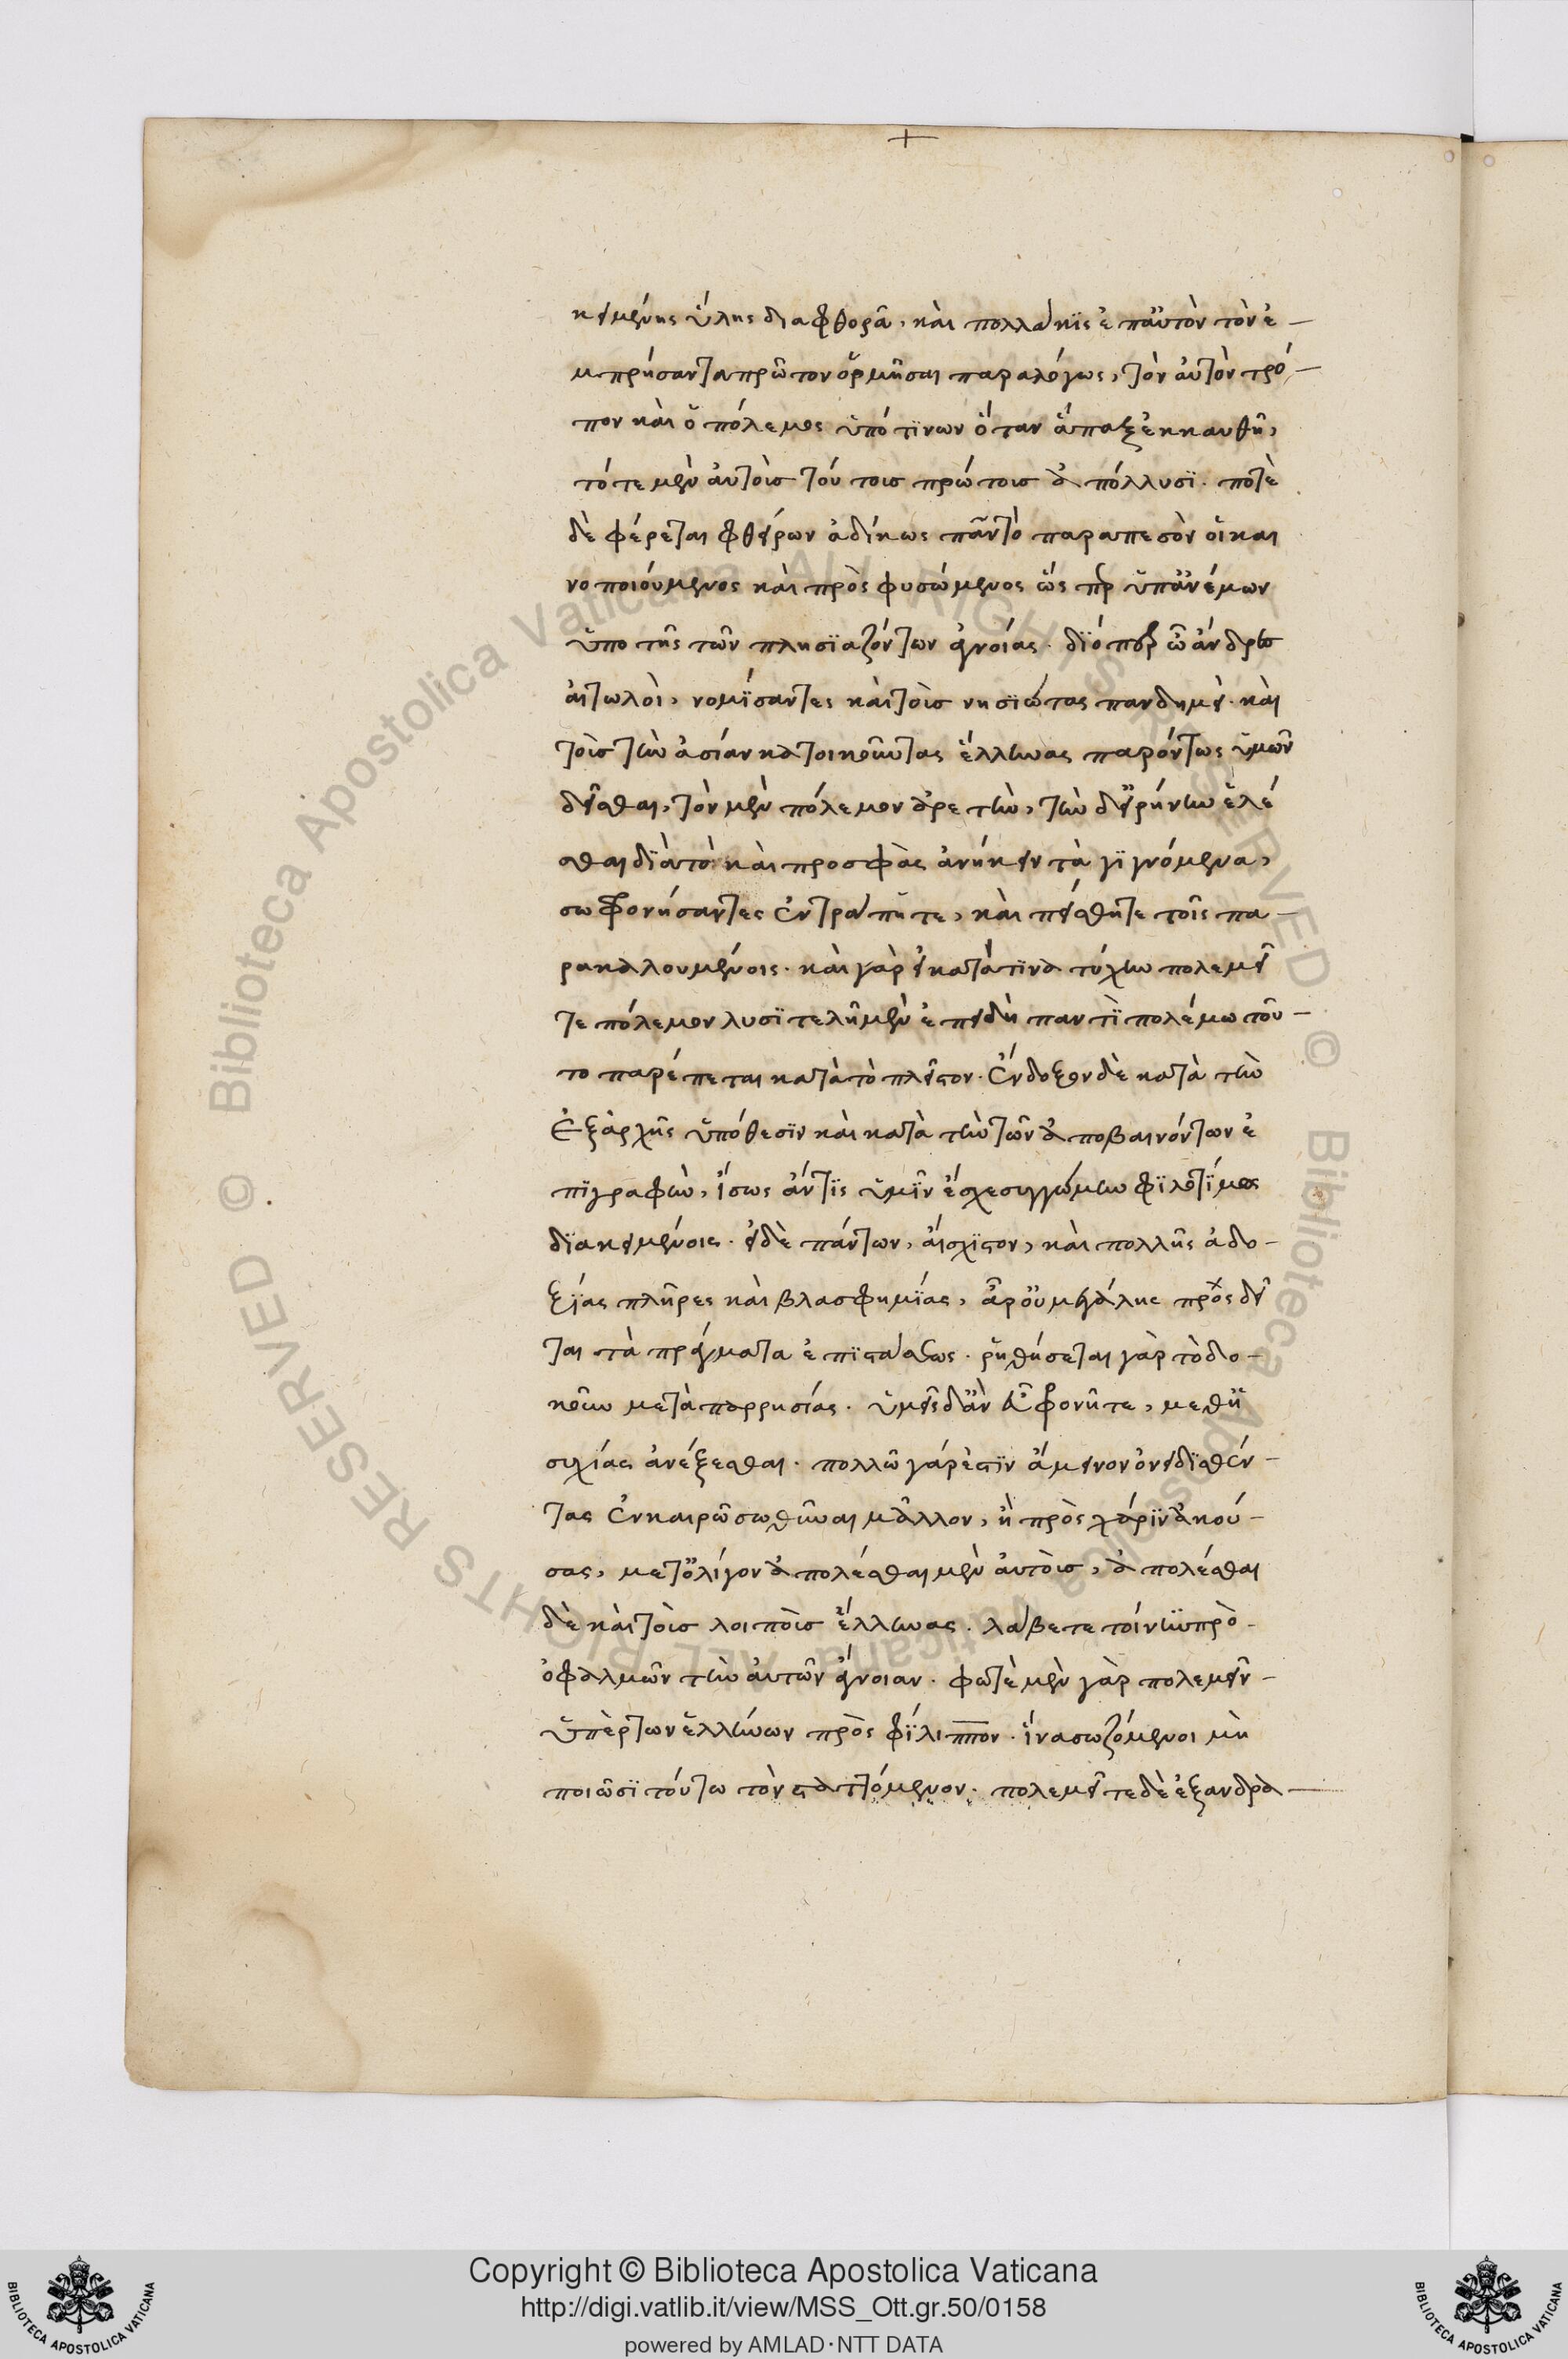 κειμένης ὕλης διαφθορᾶ, καὶ πολλάκϊς ἐπαὐτὸν τὸν ἐ-
μπρήσαντα πρῶτον ὁρμῆσαι παραλόγως, τὸν αὐτὸν τρό-
πον καὶ ὁ πόλεμος ὑπό τϊνων ὅταν ἅπαξ ἐκκαυθῆ,
τότε μὲν αὐτοὺσ τούτουσ πρώτουσ ἀπόλλυσϊ. ποτὲ
δὲ φέρεται φθείρων ἀδίκως πᾶν τὸ παραπεσὸν οἷκαι
νοποιούμενος καὶ πρὸς φυσώμενος ὥς πρ ὑπἀνέμων
ὑπο τῆς τῶν πλησϊαζόντων ἀγνοίας. δϊόπερ ὦ ἄνδρες
αἰτωλοὶ, νομίσαντες καὶ τοὺσ νησϊώτας πανδημεὶ. καὶ
τοὺσ τὴν ἀσίαν κατοικοῦντας ἕλληνας παρόντως ὑμῶν
δεῖσθαι, τὸν μὲν πόλεμον ἀρετὴν, τὴν δεἰρήνην ἑλέ
σθαι δϊὰ τὸ καὶ προσφὰς ἀνήκειν τὰ γϊγνόμενα,
σωφρονήσαντες ἐντράπητε, καὶ πείσθητε τοῖς πα-
ρακαλουμένοις. καὶ γὰρ εἰ κατάτϊνα τύχην πολεμεῖ
τε πόλεμον λυσϊτελῆ μὲν ἐπειδὴ παντὶ πολέμω τοῦ-
το παρέπεται κατὰ τὸ πλεῖστον. ἔνδοξον δὲ κατὰ τὴν
ἐξἀρχῆς ὑπόθεσϊν καὶ κατὰ τὴν τῶν ἀποβαινόντων ἐ
πϊγραφὴν, ἴσως ἄν τϊς ὑμῖν ἔσχε συγγώμην φϊλοτίμως
δϊακειμένοις. εἰ δὲ πάντων, αἴσχϊστον, καὶ πολλῆς ἀδο-
ξίας πλῆρες καὶ βλασφημίας, ἆρ οὐ μεγάλης προσδεῖ
ται τὰ πράγματα ἐπϊστάσεως. ῥηθήσεται γὰρ τὸ δο-
κοῦν μετὰ παρρησίας. ὑμεῖς δἂν εὖ φρονῆτε, μεθἡ
συχίας ἀνέξεσθαι. πολλῶ γάρ ἐστϊν ἄμεινον ὀνειδϊσθέν-
τας ἐν καιρῶ σωθῆναι μᾶλλον, ἢ πρὸς χάρϊν ἀκού-
σας, μετὀλίγον ἀπολέσθαι μὲν αὐτοὺσ, ἀπολέσθαι
δὲ καὶ τοὺσ λοιποὺσ ἕλληνας. λάβετε τοίνυν πρὸ
ὀφθαλμῶν τὴν αὐτῶν ἄγνοιαν. φατὲ μὲν γὰρ πολεμεῖν
ὑπὲρ τῶν ἑλλήνων πρὸς φίλιππον. ἵνα σωζόμενοι μὴ
ποιῶσϊ τούτω τὸν σταττόμενον. πολεμεῖτε δὲ ἐξανδρα
Copyright © Biblioteca Apostolica Vaticana
http://digi.vatlib.it/view/MSS_Ott.gr.50/0158
powered by AMLAD·NTT DATA